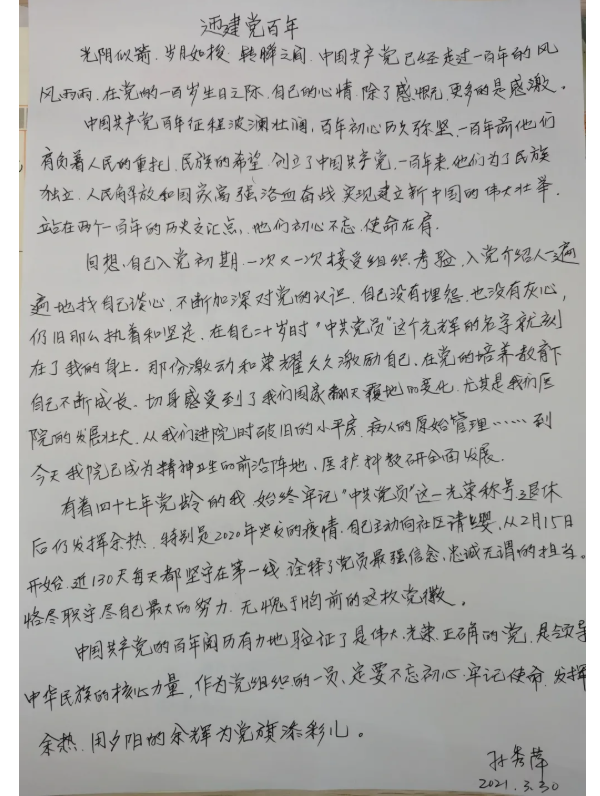 迎建党百年
光阴似箭、岁月如梭、转瞬之间、中国共产党已经走过一百年的风
风雨雨、在党的一百岁生日之际、自己的心情、除了感慨、更多的是感激。
中国共产党百年征程波澜壮阔，百年初心历久弥坚、一百年前他们
肩负着人民的重托、民族的希望、创立了中国共产党、一百年来、他们为了民族
独立、人民解放和国家富强浴血奋战实现建立新中国的伟大壮举、
立站在两个一百年的历史交汇点、他们初心不忘、使命在肩。
回想、自己入党初期、一次又一次接受组织考验、入党介绍人一遍
遍地找自己谈心、不断加深对党的认识、自己没有埋怨、也没有灰心，
仍旧那么执着和坚定、在自己二十岁时“中共党员”这个光辉的名字就刻
在了我的身上、那份激动和荣耀久久激励自己、在党的培养教育下
自己不断成长、切身感受到了我们国家翻天覆地的变化、尤其是我们医
院的发展壮大、从我们进院时破旧的小平房、病人的原始管理……到
今天我院已成为精神卫生的前沿阵地、医护科教研全面发展.
有着四十七年党龄的我、始终牢记“中共党员”这一光荣称号、退休
后仍发挥余热、特别是2020年突发的疫情、自己主动向社区请缨、从2月15日
开始、近130天每天都坚守在第一线、诠释了党员最强信念、忠诚无谓的担当。
恪尽职守尽自己最大的努力、无愧于胸前的这枚党徽。
中国共产党的百年阅历有力地验证了是伟大、光荣、正确的党、是领导
中华民族的核心力量、作为党组织的一员、定要不忘初心、牢记使命、发挥
余热、用夕阳的余辉为党旗添彩儿。
孙秀萍
2021.3.30